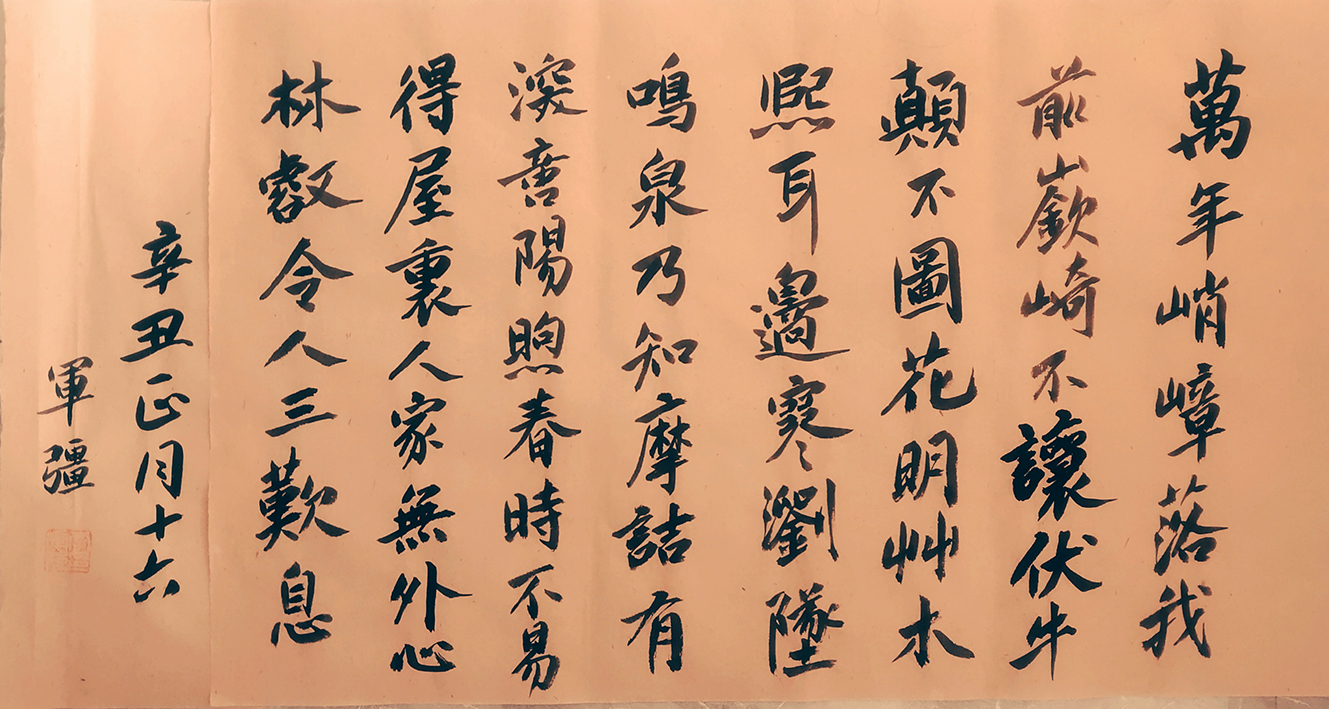 萬年峭嶂落我
前嶔崎不讓伏牛
顛不圖花明艸木
熈耳邊寒瀏墜
鳴泉乃知摩詰有
湥陽煦春時不易
得屋裏人家無外心
林㕡令人三歎息
辛丑正月十六
軍疆